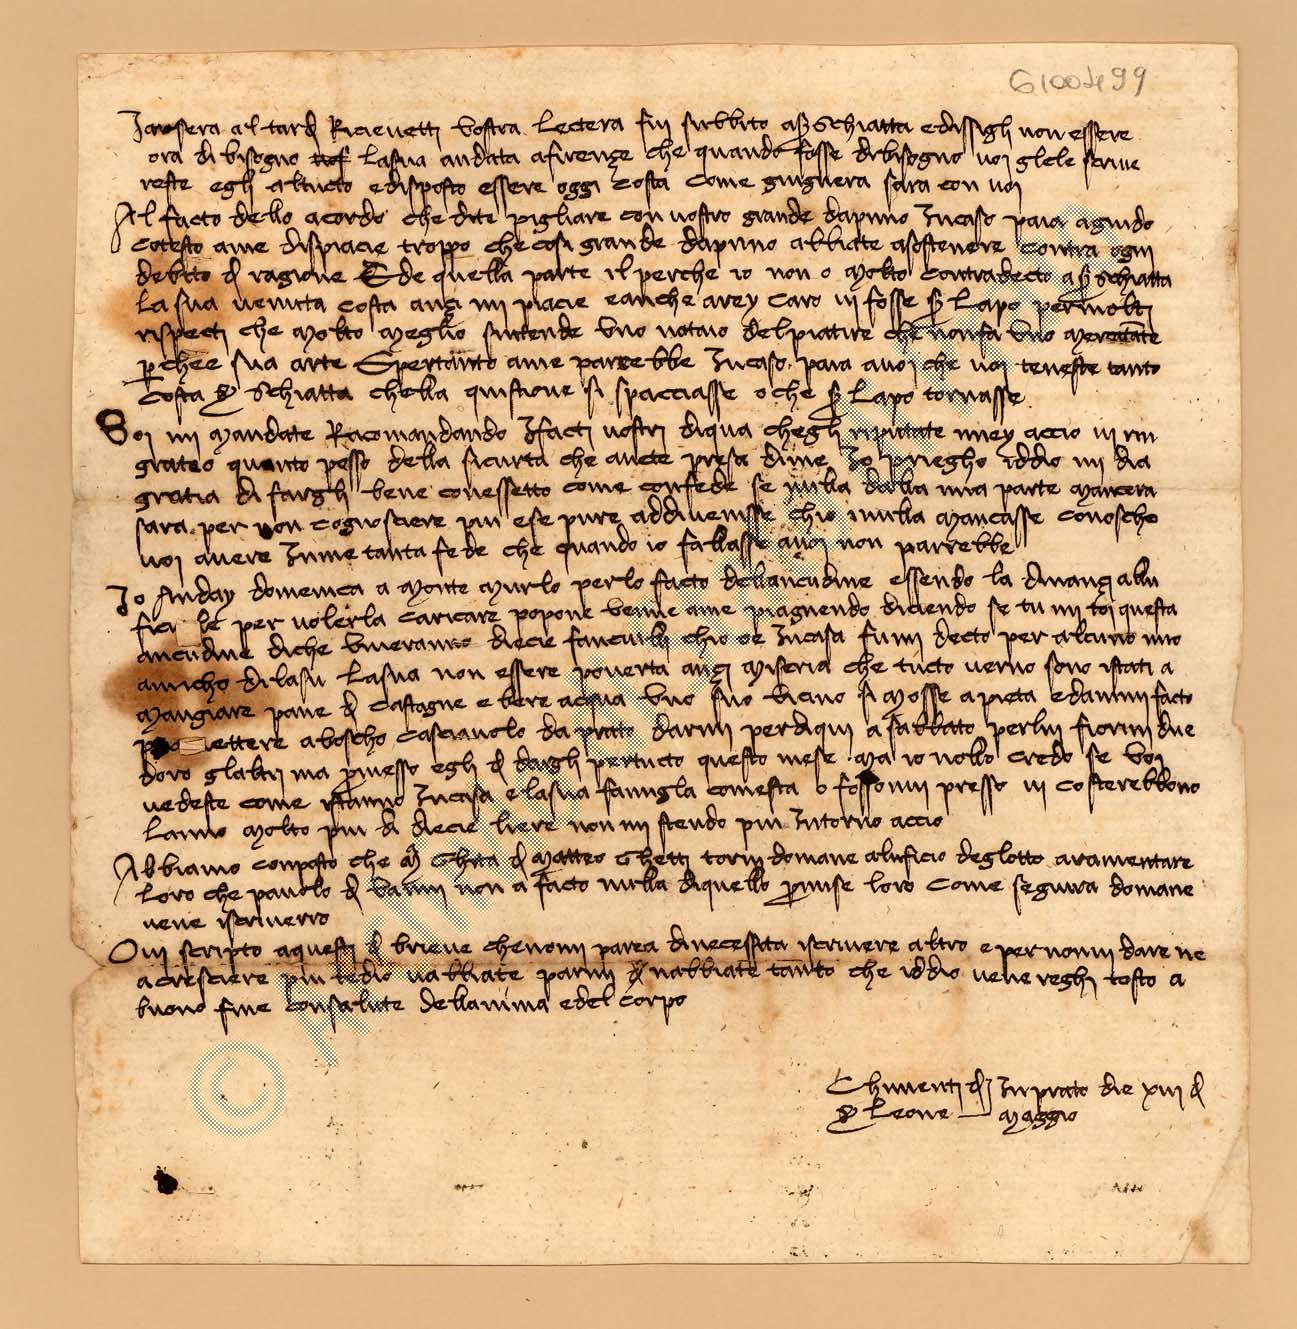 6100499
Jarsera al tard Ricievetti vostra lectera fui subbito a s Schiatta e dissigli non essere
ora di bisogno la sua andata a firençe che quando fosse di bisogno voi gliele scrive
reste egli al tucto e disposto essere oggi costa come giugnera sara con voi
Al facto dello acordo che dite pigliare con vostro grande dapnno Incaso paia a guido
cotesto a me dispiacie troppo che cosi grande dapnno abbiate a sostenere contra ogni
debito d ragione E de quella parte il perche io non o Molto contradecto a s Schiatta
la sua venuta costa ançi mi piacie e anche arey caro vi fosse s Lapo per molti
rispecti che Molto Meglio sintende Uno notaio del piatire che non fa Uno Mercatante
perche e sua arte Spertanto a me parrebbe Incaso paia a voi che voi teneste tanto
costa s Schiatta chella quistione si spacciasse o che s Lapo tornasse
Voi mi Mandate Racomandando I facti vostri di qua chegli riputate miey accio vi rin
gratio quanto posso della sicurta che avete presa di me Io priegho iddio mi dia
gratia di fargli bene con effetto come con fede se nulla dalla mia parte Manchera
sara per non cognoscere piu e se pure addivenisse chio nulla Mancasse conoscho
voi avere In me tanta fede che quando io fallasse a voi non parrebbe
Io Anday domenica a Monte Murlo per lo facto dellancudine essendo la dinançi alla
fici le per volerla caricare popone venne a me piagnendo diciendo se tu mi toi questa
ancudine di che viveranno diecie fanciulli chio oe Incasa fummi decto per alcuno mio
amicho di lasu la sua non essere poverta ançi Miseria che tucto verno sono istati a
Mangiare pane d castagne e bere acqua Uno suo vicino si Mosse a pieta e dammi facto
mettere a boscho cascianolo da prato darmi per di qui a sabbato per lui fiorini due
doro glaltri ma promesso egli d dargli per tucto questo mese Ma io nollo credo se voi
vedeste come istanno Incasa e la sua famigla comesta o fossonvi presso vi costerebbono
lanno Molto piu di diecie liere non mi stendo piu Intorno accio
Abbiamo conposto che M Ghita d Matteo Ghetti torni domane aluficio deglotto a ramentare
loro che paulo d Vanni non a facto nulla di quello promise loro come seguira domane
vene iscriverro
Ovi scripto a questi d brieve che non mi parea di necessita iscrivere altro e per non mi dare ne
a cresciere piu tedio vabbiate parmi nabbiate tanto che iddio vene reghi tosto a
buono fine con salute dellanima e del corpo
Chimenti d In prato die xiii d
s Leone Maggio